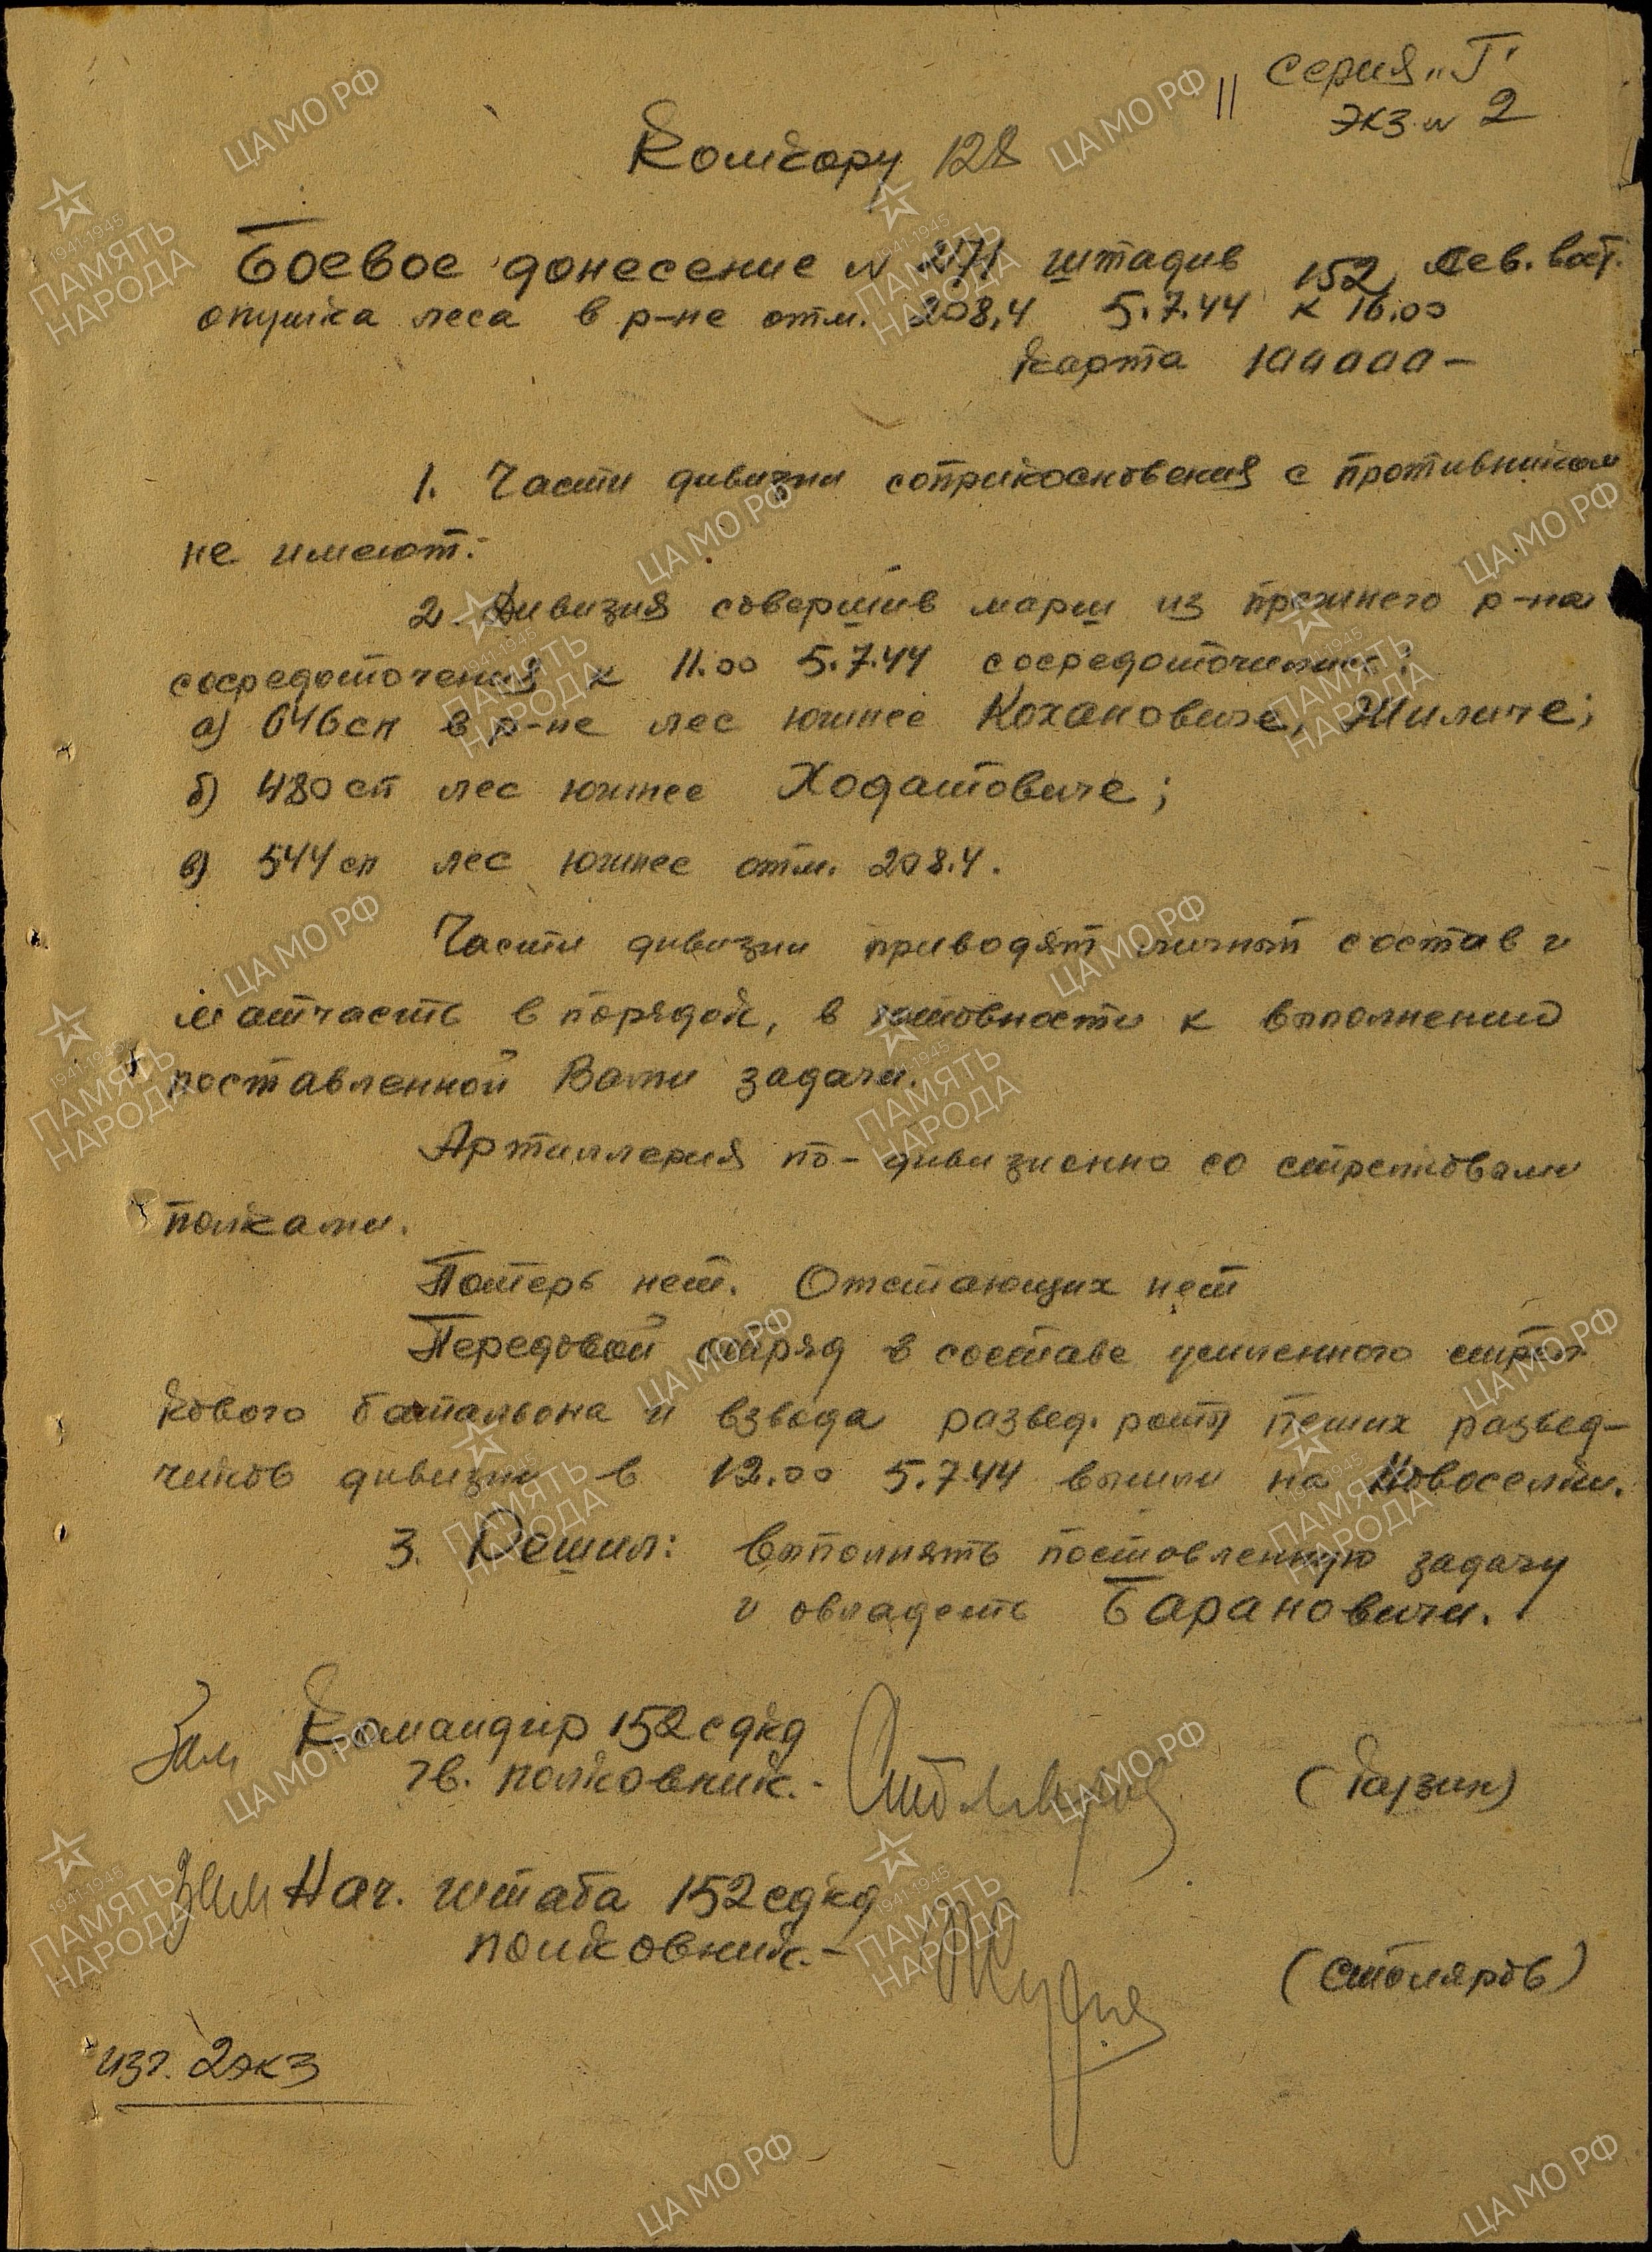 Серия „Г"
экз. N 2
Комкору 128
Боевое донесение N 271 штадив 152, Сев. вост.
опушка леса в р-не отм. 208,4 5.7.44 к 16.00
Карта 100000-
1. Части дивизии соприкосновения с противником
не имеют.-
2. Дивизия совершив марш из прежнего р-на
сосредоточения к 11.00 5.7.44 сосредоточилась:
а) 646 сп в р-не лес южнее Кохановиче, Жиличе;
б) 480 сп лес южнее Ходатовиче;
в) 544 сп лес южнее отм. 208.4.
Части дивизии приводят личный состав и
матчасть в порядок, в готовности к выполнению
поставленной Вами задачи.
Артиллерия по-дивизионно со стрелковыми
полками.
Потерь нет. Отстающих нет
Передовой отряд в составе усиленного стрел
кового батальона и взвода развед. роты пеших развед-
чиков дивизии в 12.00 5.7.44 вышли на Новоселки.
3. Решил: Выполнять поставленную задачу
и овладеть Барановичи.
Зам Командир 152 сдкд
гв. полковник.- (Каузин)
Зам Нач. штаба 152 сдкд
полковник.-
(Столяров)
изг. 2 экз
ЦАМО РФ
1941-1945
ПАМЯТЬ
НАРОДА